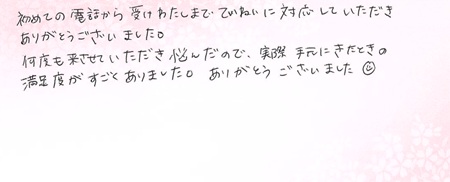 初めての電話から受けわたしまでていねいに対応していただき
ありがとうございました。
何度も来させていただき悩んだので、実際手元にきたときの
満足度がすごくありました。ありがとうございました☺